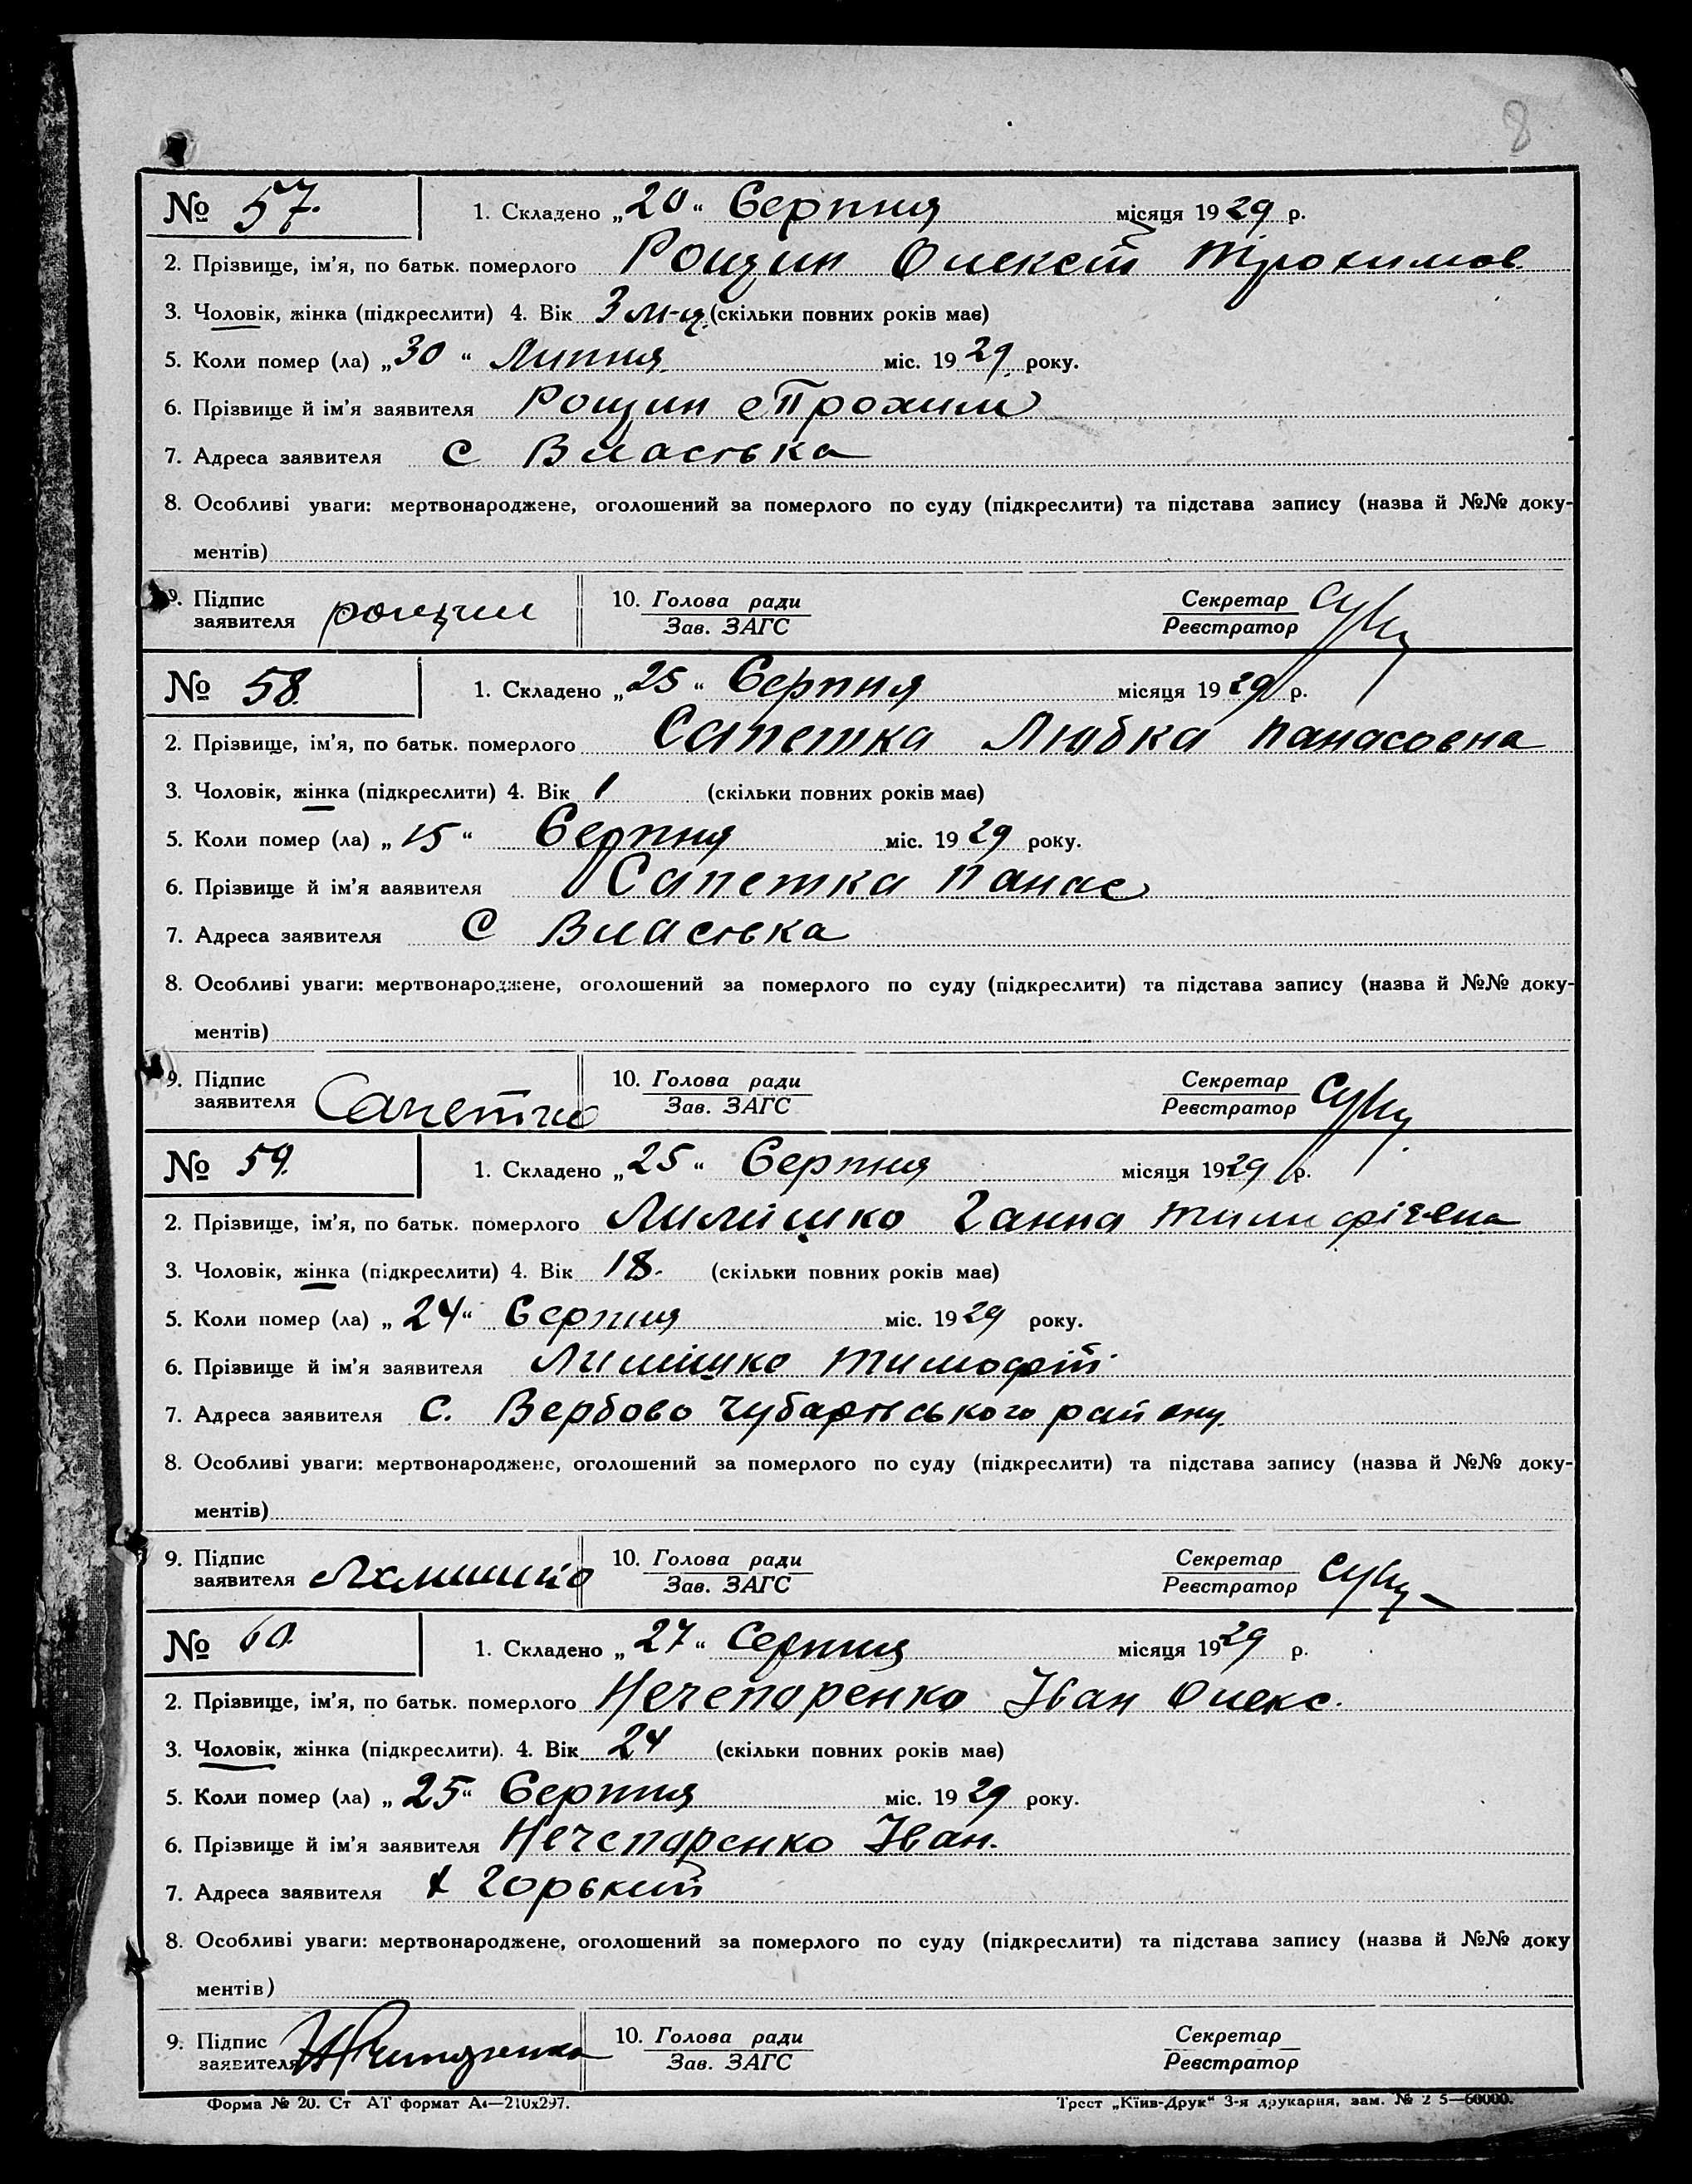 8
№ 57. 1. Складено „20“ Серпня місяця 1929 р.
2. Прізвище, ім'я, по батьк. померлого Рощин Олексій Трохимов.
3. Чоловік, жінка (підкреслити) 4. Вік 3 м-ця. (скільки повних років має)
5. Коли помер (ла) „30“ Липня міс. 1929 року.
6. Прізвище й ім'я заявителя Рощин Трохим
7. Адреса заявителя с Власівка
8. Особливі уваги: мертвонароджене, оголошений за померлого по суду (підкреслити) та підстава запису (назва й №№ доку-
ментів)
9. Підпис заявителя рощин 10. Голова ради Секретар
Зав. ЗАГС Реєстратор
№ 58. 1. Складено „25“ Серпня місяця 1929 р.
2. Прізвище, ім'я, по батьк. померлого Сапетка Любка Панасовна
3. Чоловік, жінка (підкреслити) 4. Вік 1 (скільки повних років має)
5. Коли помер (ла) „15“ Серпня міс. 1929 року.
6. Прізвище й ім'я заявителя Сапетка Панас
7. Адреса заявителя с Власівка
8. Особливі уваги: мертвонароджене, оголошений за померлого по суду (підкреслити) та підстава запису (назва й №№ доку-
ментів)
9. Підпис заявителя 10. Голова ради Секретар
Зав. ЗАГС Реєстратор
№ 59. 1. Складено „25“ Серпня місяця 1929 р.
2. Прізвище, ім'я, по батьк. померлого Ганна Тимофієвна
3. Чоловік, жінка (підкреслити) 4. Вік 18. (скільки повних років має)
5. Коли помер (ла) „24“ Серпня міс. 1929 року.
6. Прізвище й ім'я заявителя Тимофій
7. Адреса заявителя с. Вербово Чубарівського району.
8. Особливі уваги: мертвонароджене, оголошений за померлого по суду (підкреслити) та підстава запису (назва й №№ доку-
ментів)
9. Підпис заявителя 10. Голова ради Секретар
Зав. ЗАГС Реєстратор
№ 60. 1. Складено „27“ Серпня місяця 1929 р.
2. Прізвище, ім'я, по батьк. померлого Нечепоренко Іван Олекс.
3. Чоловік, жінка (підкреслити). 4. Вік 24 (скільки повних років має)
5. Коли помер (ла) „25“ Серпня міс. 1929 року.
6. Прізвище й ім'я заявителя Нечепоренко Іван.
7. Адреса заявителя х Горький
8. Особливі уваги: мертвонароджене, оголошений за померлого по суду (підкреслити) та підстава запису (назва й №№ доку
ментів)
9. Підпис заявителя 10. Голова ради Секретар
Зав. ЗАГС Реєстратор
Форма № 20. Ст АТ формат А4—210х297. Трест „Київ-Друк“ 3-я друкарня, зам. № 2 5—60000.